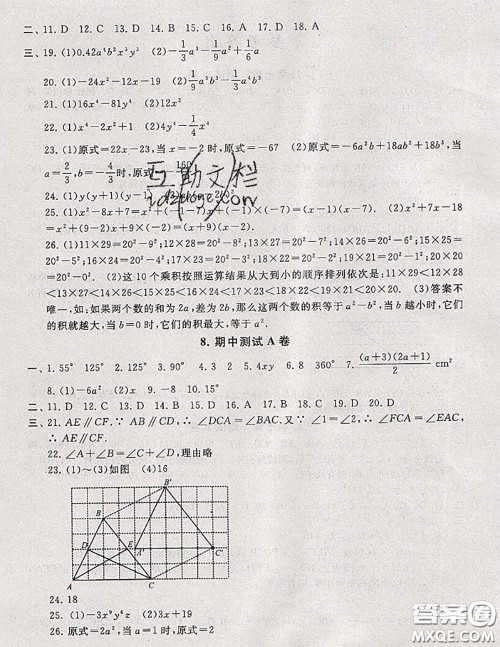 二、11. D　12. C　13. D　14. B　15. C　16. A　17. D　18. A
三、19. (1)0.42a⁴b²x³y²　(2)-1/3a³-1/9a²+1/6a
20. (1)-24x³-12x-19　(2)1/9a⁵b³-1/4a⁶b³
21. (1)16x⁴-81y⁴　(2)12x²
22. (1)x⁴-2x²+1　(2)y⁴-1/4x⁴
23. (1)原式=22x-23,当x=-2时,原式=-67　(2)原式=-6a²b+18ab²+18b³,当
a=2/3,b=-4/3时,原式=
24. (1)y(y+1)(y-1)
25. (1)x²-8x+7=x²+(-1-7)x+(-1)×(-7)=(x-1)(x-7).　(2)x²+7x-18
=x²+(9-2)x+9×(-2)=(x+9)(x-2).
26. (1)11×29=20²-9²;12×28=20²-8²;13×27=20²-7²;14×26=20²-6²;15×25=20²
-5²;16×24=20²-4²;17×23=20²-3²;18×22=20²-2²;19×21=20²-1²;20×20
=20²-0².　(2)这10个乘积按照运算结果从大到小的顺序排列依次是:11×29<12×28
<13×27<14×26<15×25<16×24<17×23<18×22<19×21<20×20　(3)答案不
唯一,如:如果两个数的和为2a,差为2b,那么这两个数的积等于a²-b²,当b越小时,它们
的积就越大,当b=0时,它们的积最大,等于a².
8. 期中测试A卷
一、1. 55°　125°　2. 125°　3. 90°　4. 3　2　5. 4xy　6. 8　360°　7. (a+3)(2a+1)/2 cm²
8. (1)-6a²　(2)x　9. -8　10. 15°
二、11. D　12. C　13. D　14. D　15. D　16. A　17. B　18. D　19. D　20. D
三、21. AE∥CF. ∵AB∥CD,∴∠DCA=∠BAC.又∵∠1=∠2,∴∠FCA=∠EAC,
∴AE∥CF.
22. ∠A+∠B=∠C+∠D,理由略
23. (1)~(3)如图　(4)16
B′
B
D
E
A′
C′
A
C
24. 18
25. (1)-3x⁹y⁴z　(2)3x+19
26. 原式=2a²,当a=1时,原式=2
互助文栏
答案圈
MXQE.COM